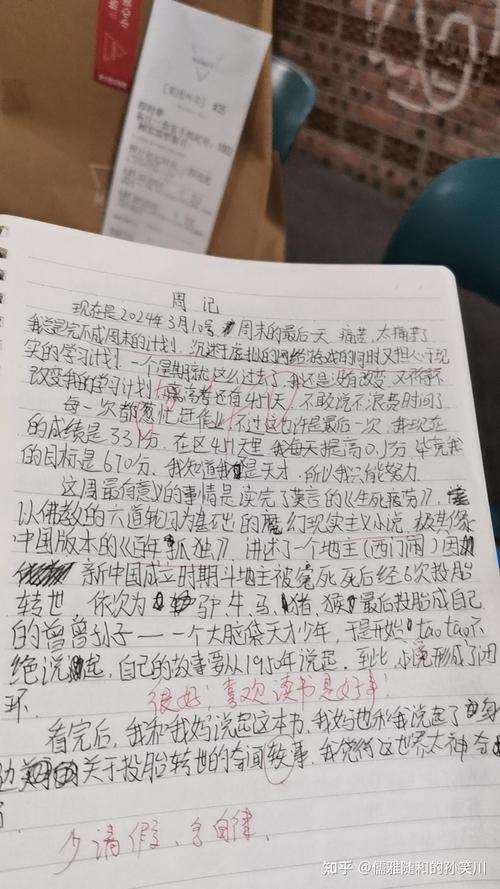 周记
现在是2024年3月10号 周末的最后一天 痛苦,太痛苦了
我总是完不成周末的计划 沉迷于虚拟的网络游戏的同时又担心于现
实的学习计划 一个星期就这么过去了,我还是没有改变 又不得不
改变我的学习计划 离高考还有 天 不敢说不浪费时间了
每一次都葱忙赶作业 不过这也许是最后一次 我现在
的成绩是331分 在区 天里 我每天提高0.1分 毕竟我
的目标是670分. 我知道我 是天才 所以我只能努力
这周最有意义的事情是读完了莫言的《生死疲劳》,
以佛教的六道轮回为基础的魔幻现实主义小说 极其像
中国版本的《百年孤独》 讲述了一个地主(西门闹)因
新中国成立时期斗地主被 死 死后经6次投胎
转世 依次为 驴 牛、马、猪、猴 最后投胎成自己
的曾曾孙子——一个大脑袋天才少年,于是开始 taotao不
绝说起,自己的故事要从1950年说起,到此,小说形成了闭
环.
很好!喜欢读书是好事!
看完后,我和我妈说起这本书,我妈也和我说起了 身
边 关于投胎转世的奇闻轶事,我觉得这世界太神奇
了
少请假、多自律.
知乎 @儒雅随和的孙笑川